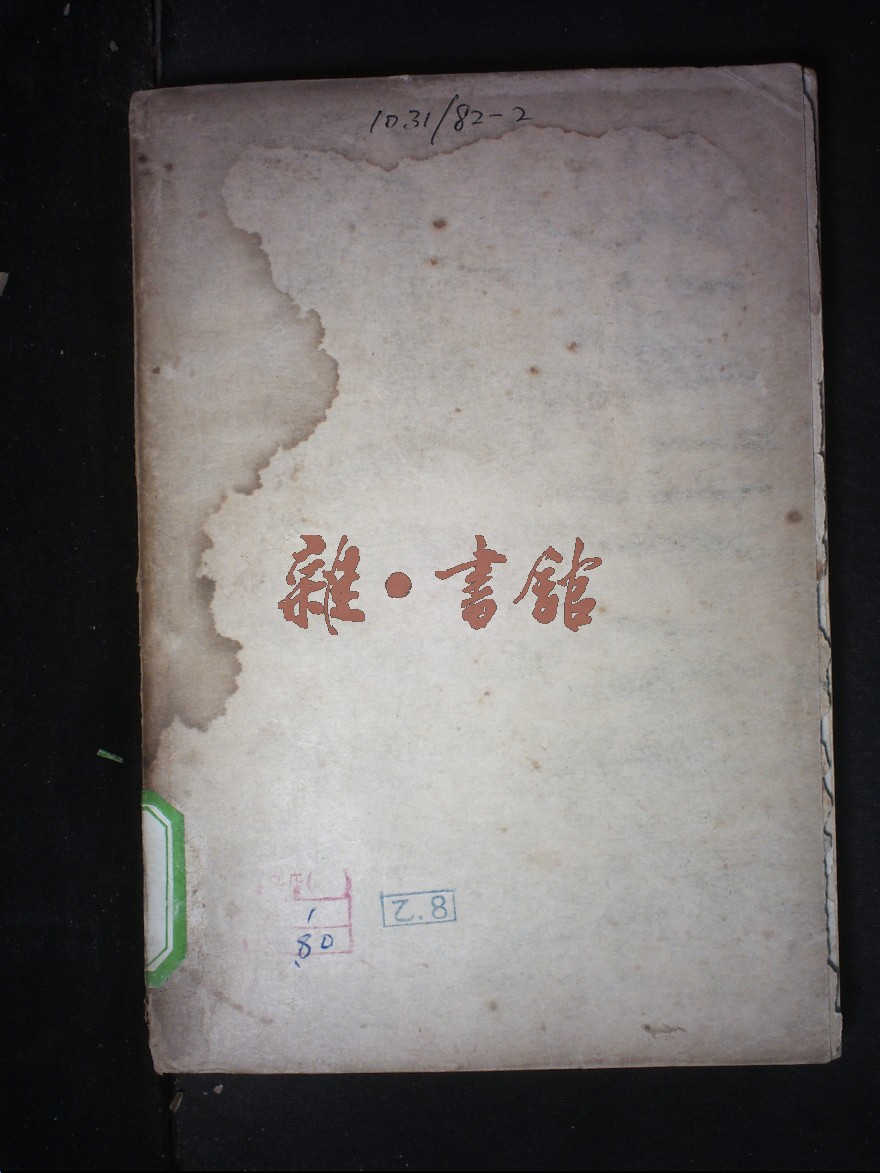 1031/82-2
雜·書舘
1
80
8.2